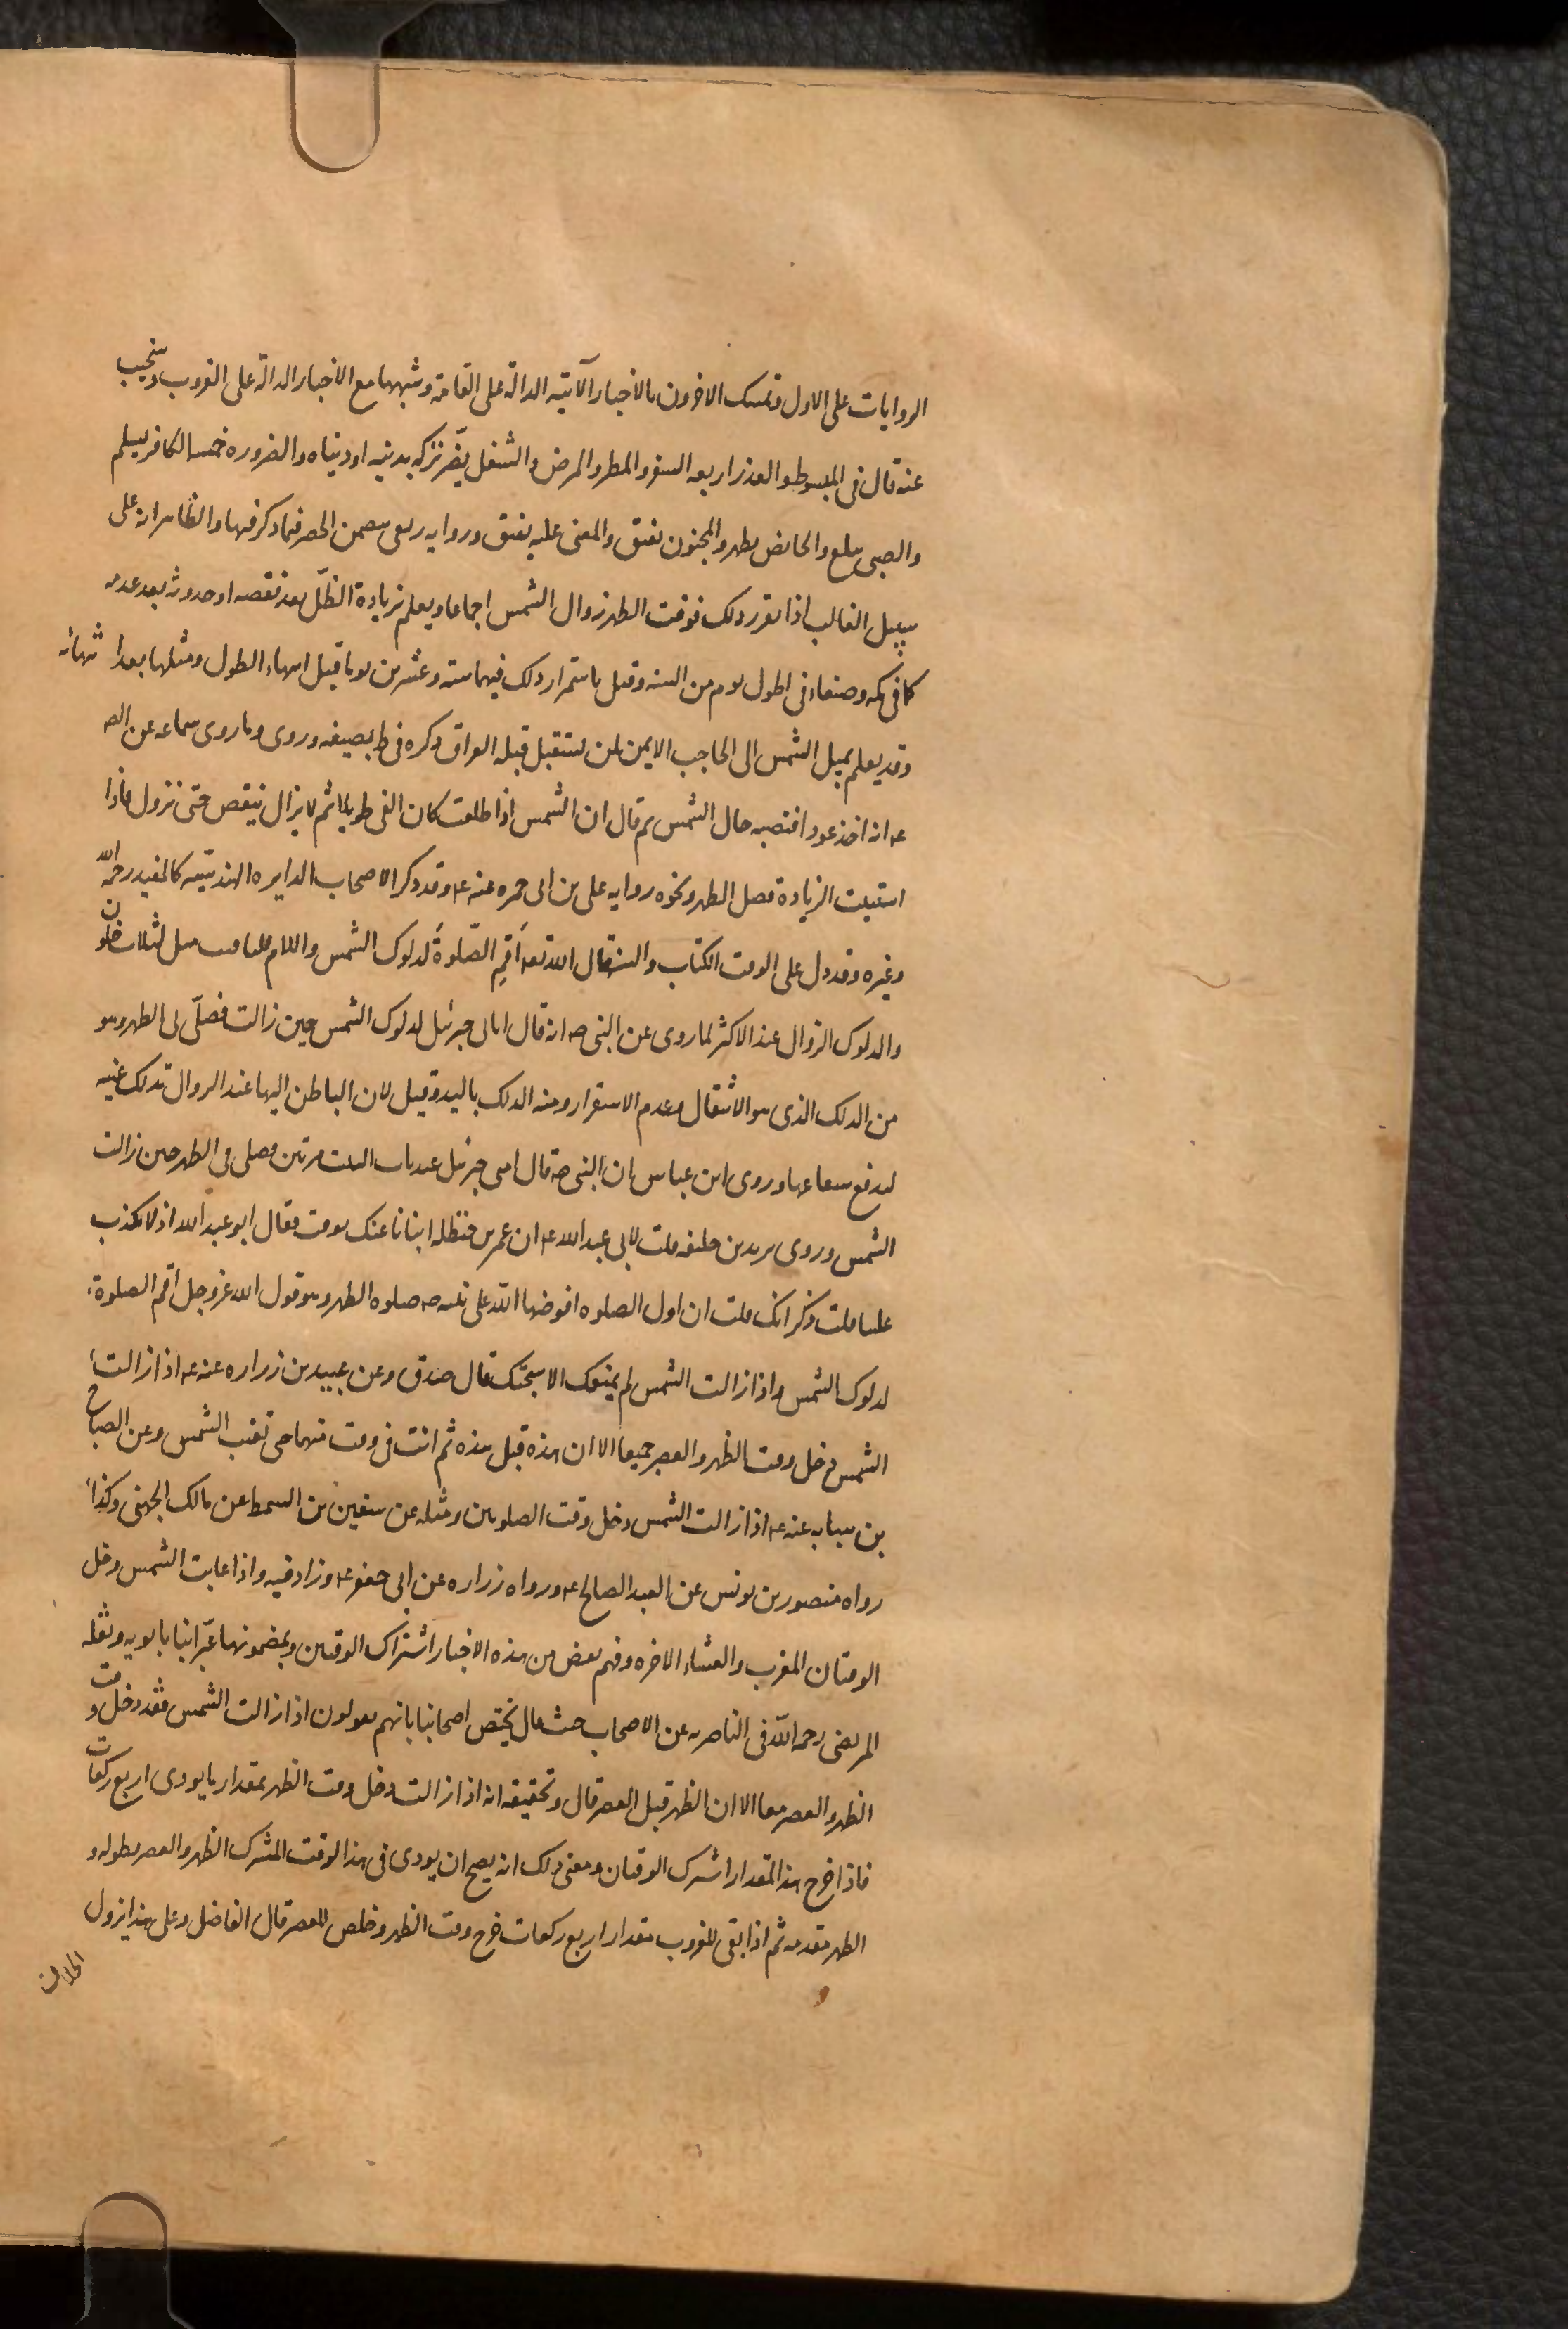 الروايات على الاول وتمسك الاخرون بالاخبار الآتية الدالة على القامة وشبهها مع الاخبار الدالة على الغروب وسنجيب
عنه قال فى المبسوط والعذر اربعه السفر والمطر والمرض والشغل يضّر تركه بدينه او دنياه والضروره خمسه الكافر يسلم
والصبى يبلغ والحايض يطهر والمجنون يفيق والمغمى عليه يفيق وروايه ربعى يتضمن الحصر فيما ذكر فيها والظاهر انه على
سبيل الغالب اذا تقرر ذلك فوقت الظهر زوال الشمس اجماعا ويعلم بزيادة الظّل بعد نقصه او حدوثه بعد عدمه
كما فى مكه وصنعاء فى اطول يوم من السنه وقيل باستمرار ذلك فيهما سته وعشرين يوما قبل انتهاء الطول ومثلها بعد انتهائه
وقد يعلم بميل الشمس الى الحاجب الايمن لمن يستقبل قبله العراق ذكره فى ط بصيغه وروى وما روى سماعه عن الص
عه انه اخذ عودا فنصبه حال الشمس ثم قال ان الشمس اذا طلعت كان الفى طويلا ثم لا يزال ينقص حتى تزول فاذا
استبنت الزيادة فصل الظهر ونحوه روايه على بن ابى حمزه عنه عه وقد ذكر الاصحاب الدايره الهنديّه كالمفيد رحمه الله
وغيره وقد دل على الوقت الكتاب والسنة قال الله تعه أقِمِ الصّلوةَ لدلوك الشمس واللام للتاقيت مثل لثلاث خلون
والدلوك الزوال عند الاكثر لما روى عن النبى صه انه قال اتانى جبرئيل لدلوك الشمس حين زالت فصلّى بى الظهر وهو
من الدلك الذى هو الانتقال وعدم الاستقرار ومنه الدلك باليد وقيل لان الناظر اليها عند الزوال تدلك عينيه
ليدفع شعاعها وروى ابن عباس ان النبى صه قال امنى جبرئيل عند باب البيت مرتين فصلى بى الظهر حين زالت
الشمس وروى يزيد بن خليفه قلت لابى عبد الله عه ان عمر بن حنظله انبانا عنك بوقت فقال ابو عبد الله اذ لا يكذب
علينا قلت ذكر انك قلت ان اول الصلوه افترضها الله على نبيه صه صلوه الظهر وهو قول الله عز وجل اقم الصلوة
لدلوك الشمس واذا زالت الشمس لم يمنعك الا سبحتك قال صدق وعن عبيد بن زراره عنه عه اذا زالت
الشمس دخل وقت الظهر والعصر جميعا الا ان هذه قبل هذه ثم انت فى وقت منهما حتى تغيب الشمس وعن الصباح
بن سيابه عنه عه اذا زالت الشمس دخل وقت الصلوتين ومثله عن سفين بن السمط عن مالك الجهنى وكذا
رواه منصور بن يونس عن العبد الصالح عه ورواه زراره عن ابى جعفر عه وزاد فيه واذا غابت الشمس دخل
الوقتان المغرب والعشاء الاخره وفهم بعض من هذه الاخبار اشتراك الوقتين وبمضمونها عبّر ابنا بابويه ونقله
المرتضى رحمه الله فى الناصريه عن الاصحاب حيث قال يختص اصحابنا بانهم يقولون اذا زالت الشمس فقد دخل وقت
الظهر والعصر معا الا ان الظهر قبل العصر قال وتحقيقه انه اذا زالت دخل وقت الظهر بمقدار ما يودى اربع ركعات
فاذا خرج هذا المقدار اشترك الوقتان ومعنى ذلك انه يصح ان يودى فى هذا الوقت المشترك الظهر والعصر بطوله و
الظهر مقدمه ثم اذا بقى للغروب مقدار اربع ركعات خرج وقت الظهر وخلص للعصر قال الفاضل وعلى هذا يزول
الخلاف